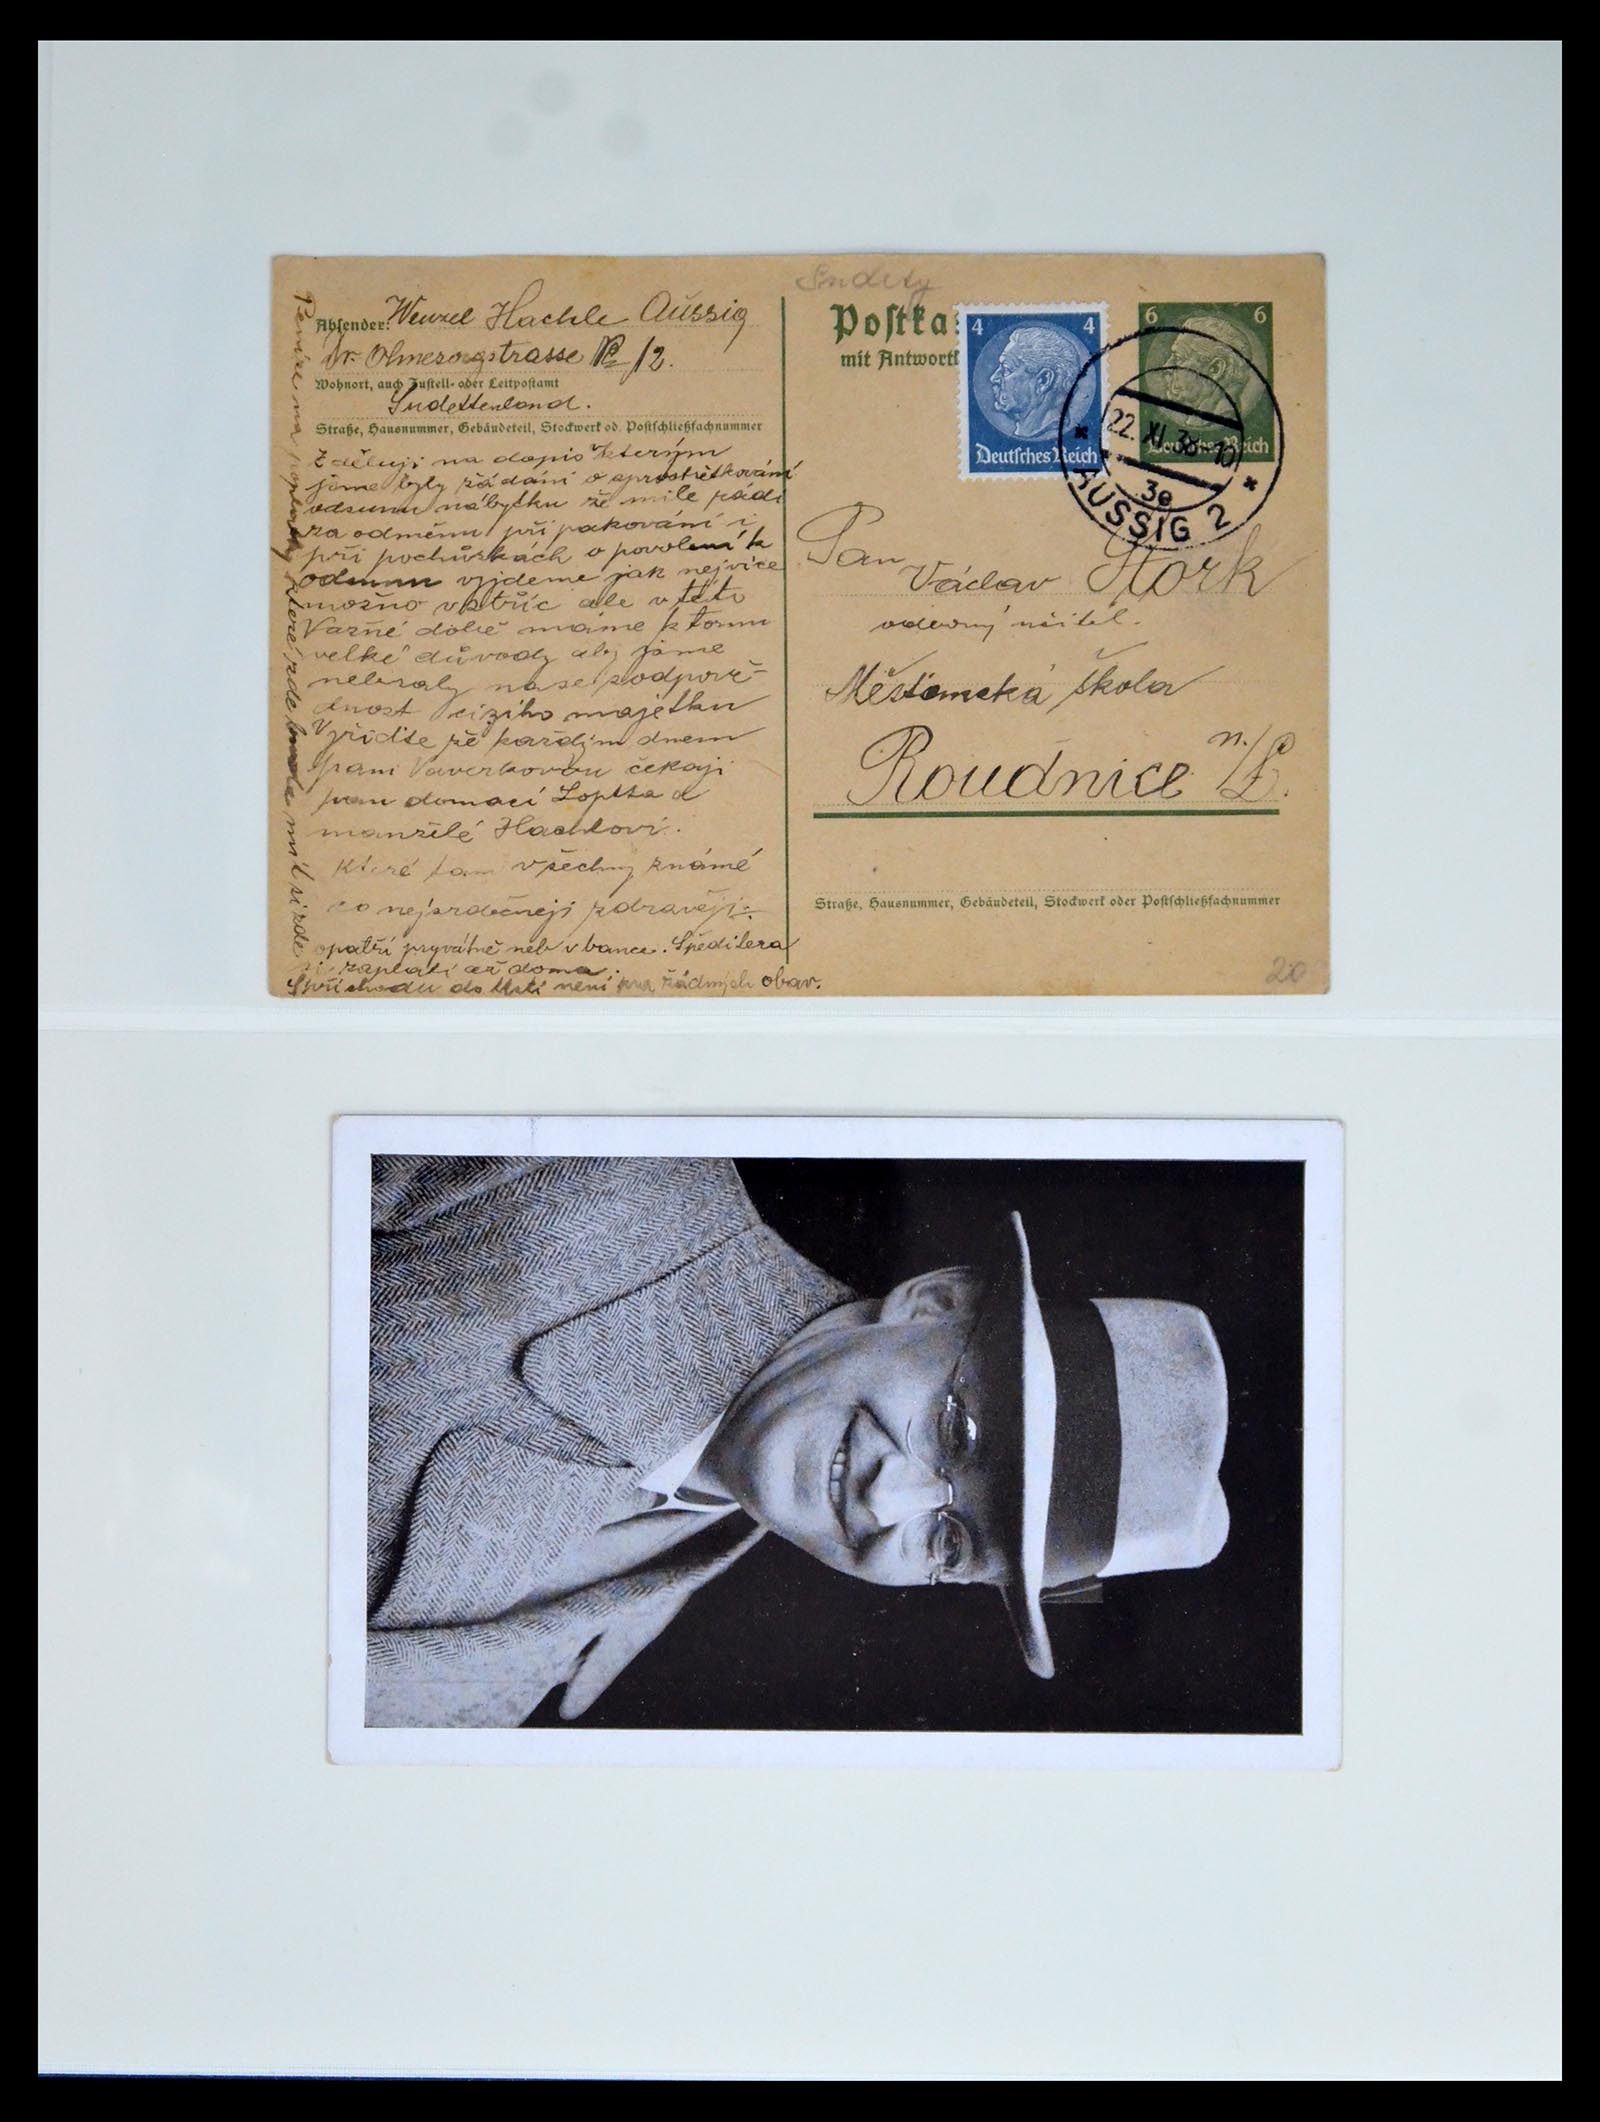 Sudety
Absender: Wenzel Hachle Aussig
Dr. Ohnesorgstrasse No /2.
Wohnort, auch Zustell- oder Leitpostamt
Sudettenland.
Straße, Hausnummer, Gebäudeteil, Stockwerk od. Postschließfachnummer
Zděluji na dopis kterým
jsme byly žádáni o sprostřetkování
odsunu nábytku že mile rádi
za odměnu při pakování i
při pochůzkách o povolení k
odsunu vyjdeme jak nejvíce
možno vstříc ale v této
Vazné době máme k tomu
velké důvody aby jsme
nebraly na se zodpově-
dnost cizího majetku
Vyřidte že každým dnem
pani Vaverkovou čekaji
pan domací Loptta a
manželé Hachlovi.
které tam všechny známé
co nejsrdečněji zdravěji:
opatří pryvátně neb v bance. Špeditera
si zaplatí až doma.
Příchodu do Ústí není žádných obav.
Peníze na poplatky které zde bude mít si zde
Postka
mit Antwort
4 4
Deutsches Reich
6 6
Deutsches Reich
22. XI. 38-10
3e
AUSSIG 2
Pan
Václav Hork
odborný učitel.
Měšťanská škola
Roudnice n./L.
Straße, Hausnummer, Gebäudeteil, Stockwerk oder Postschließfachnummer
20